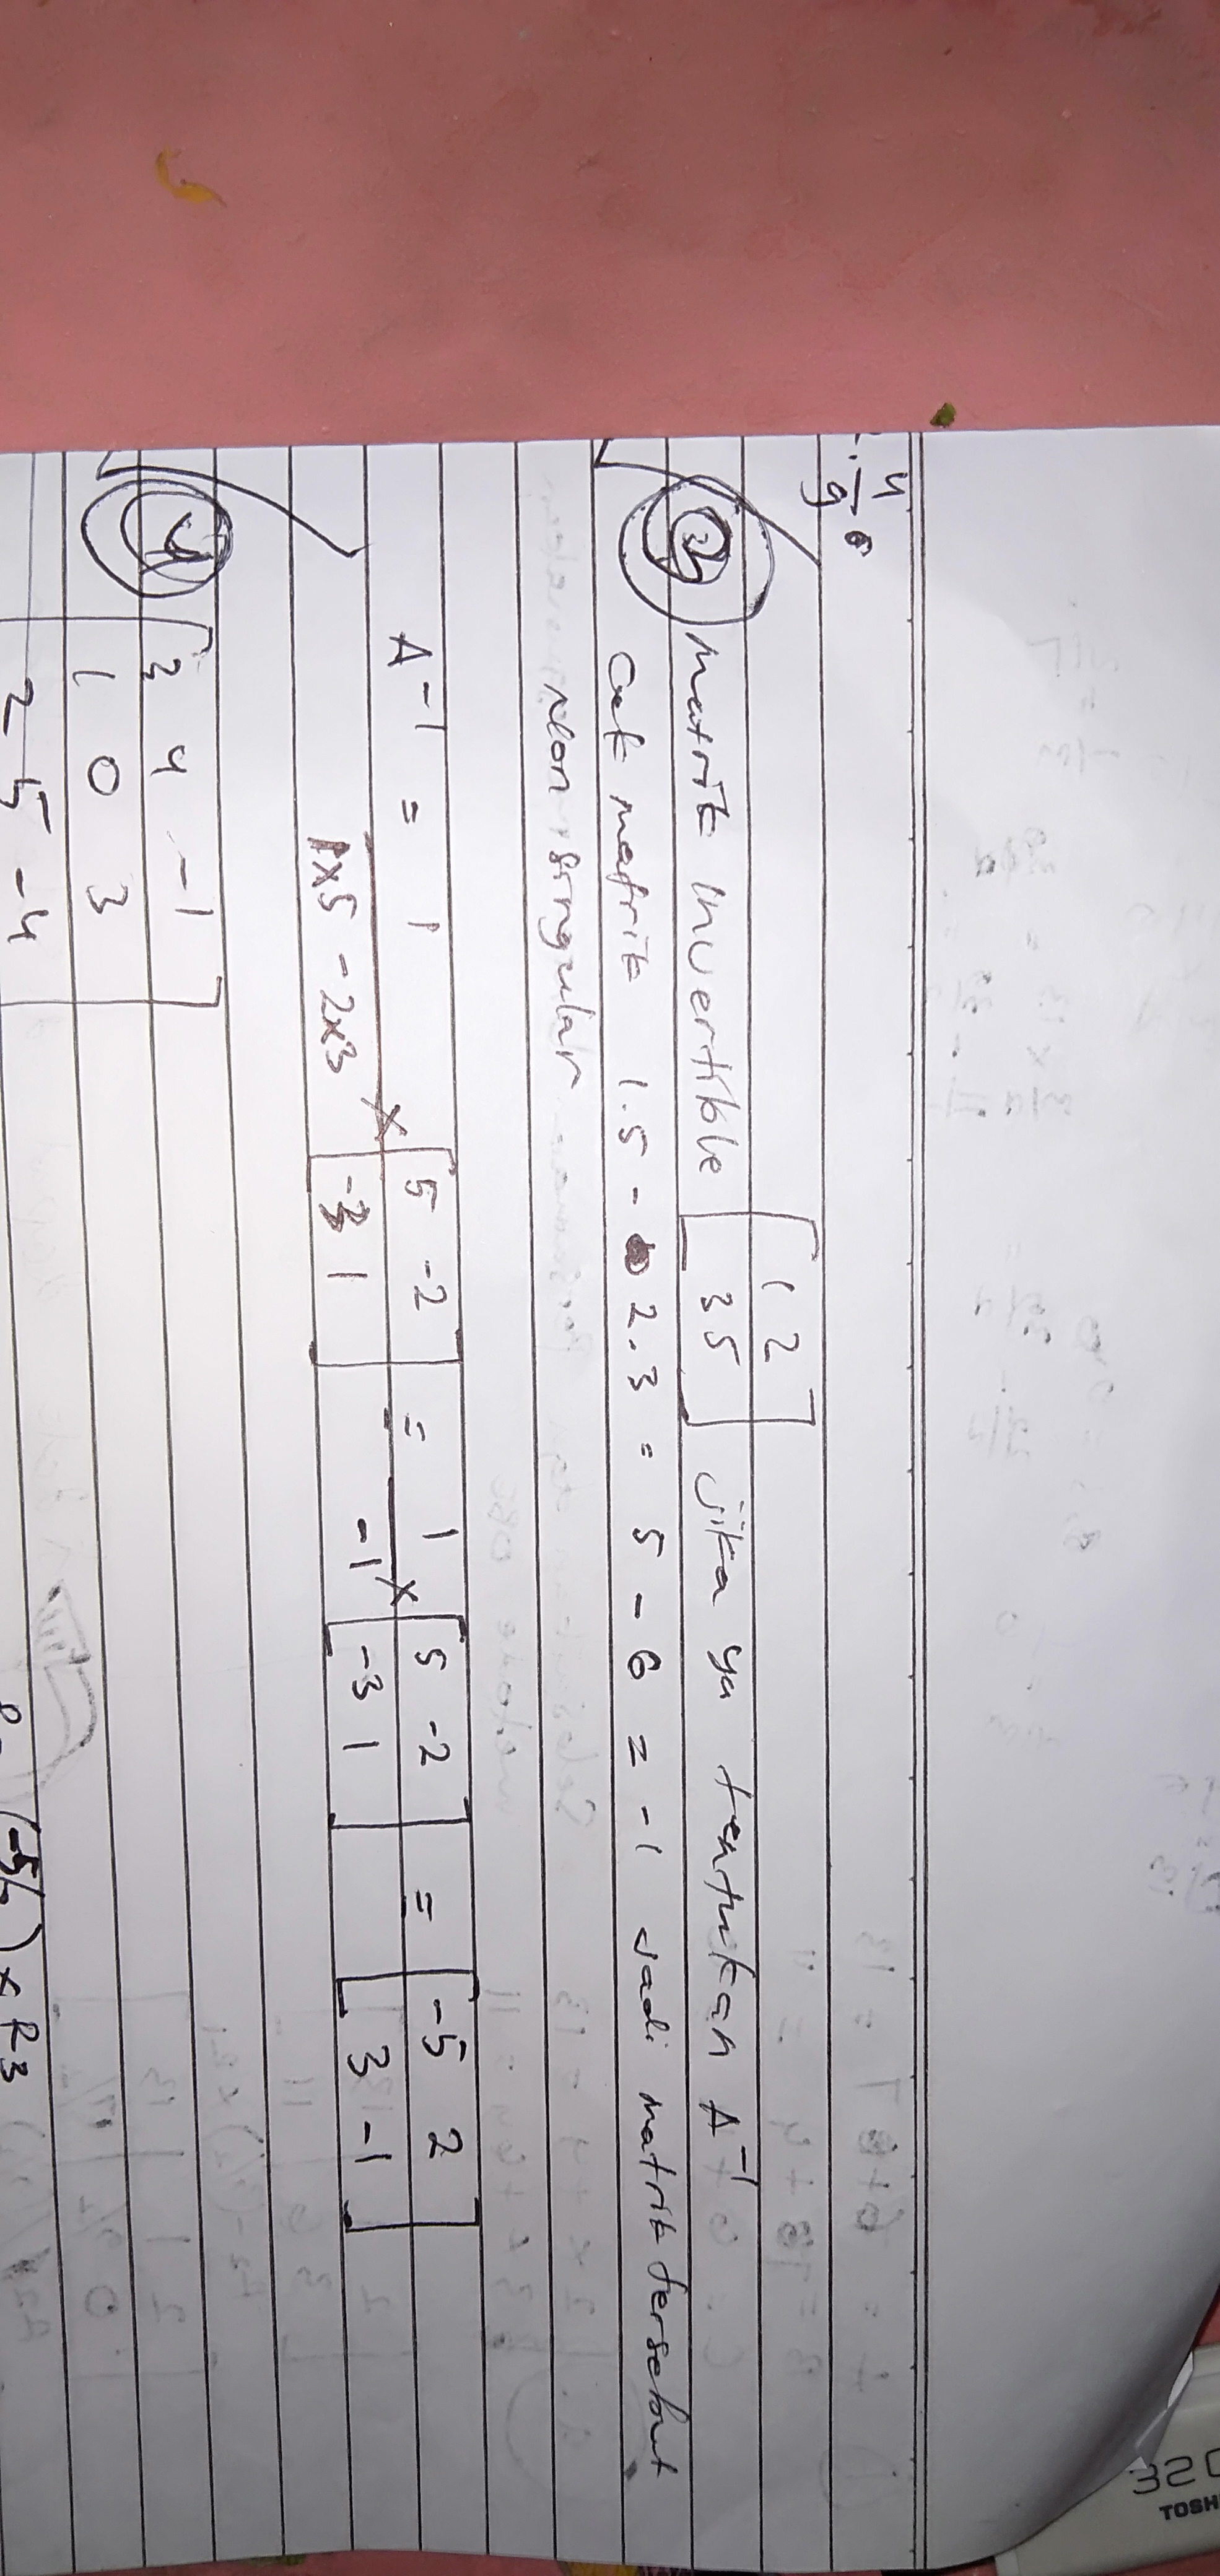 4
9
3 matrik invertible [ 1 2
3 5 ] jika ya tentukan A⁻¹
Cek matrik 1.5 - 2.3 = 5 - 6 = -1 Jadi matrik tersebut
Non singular
A⁻¹ = 1 × [ 5 -2 = 1 × [ 5 -2 = [ -5 2
1x5 - 2x3 -3 1 ] -1 -3 1 ] 3 -1 ]
4 [ 3 4 -1
1 0 3
2 5 -4
(-5/2) × R3
320
TOSH